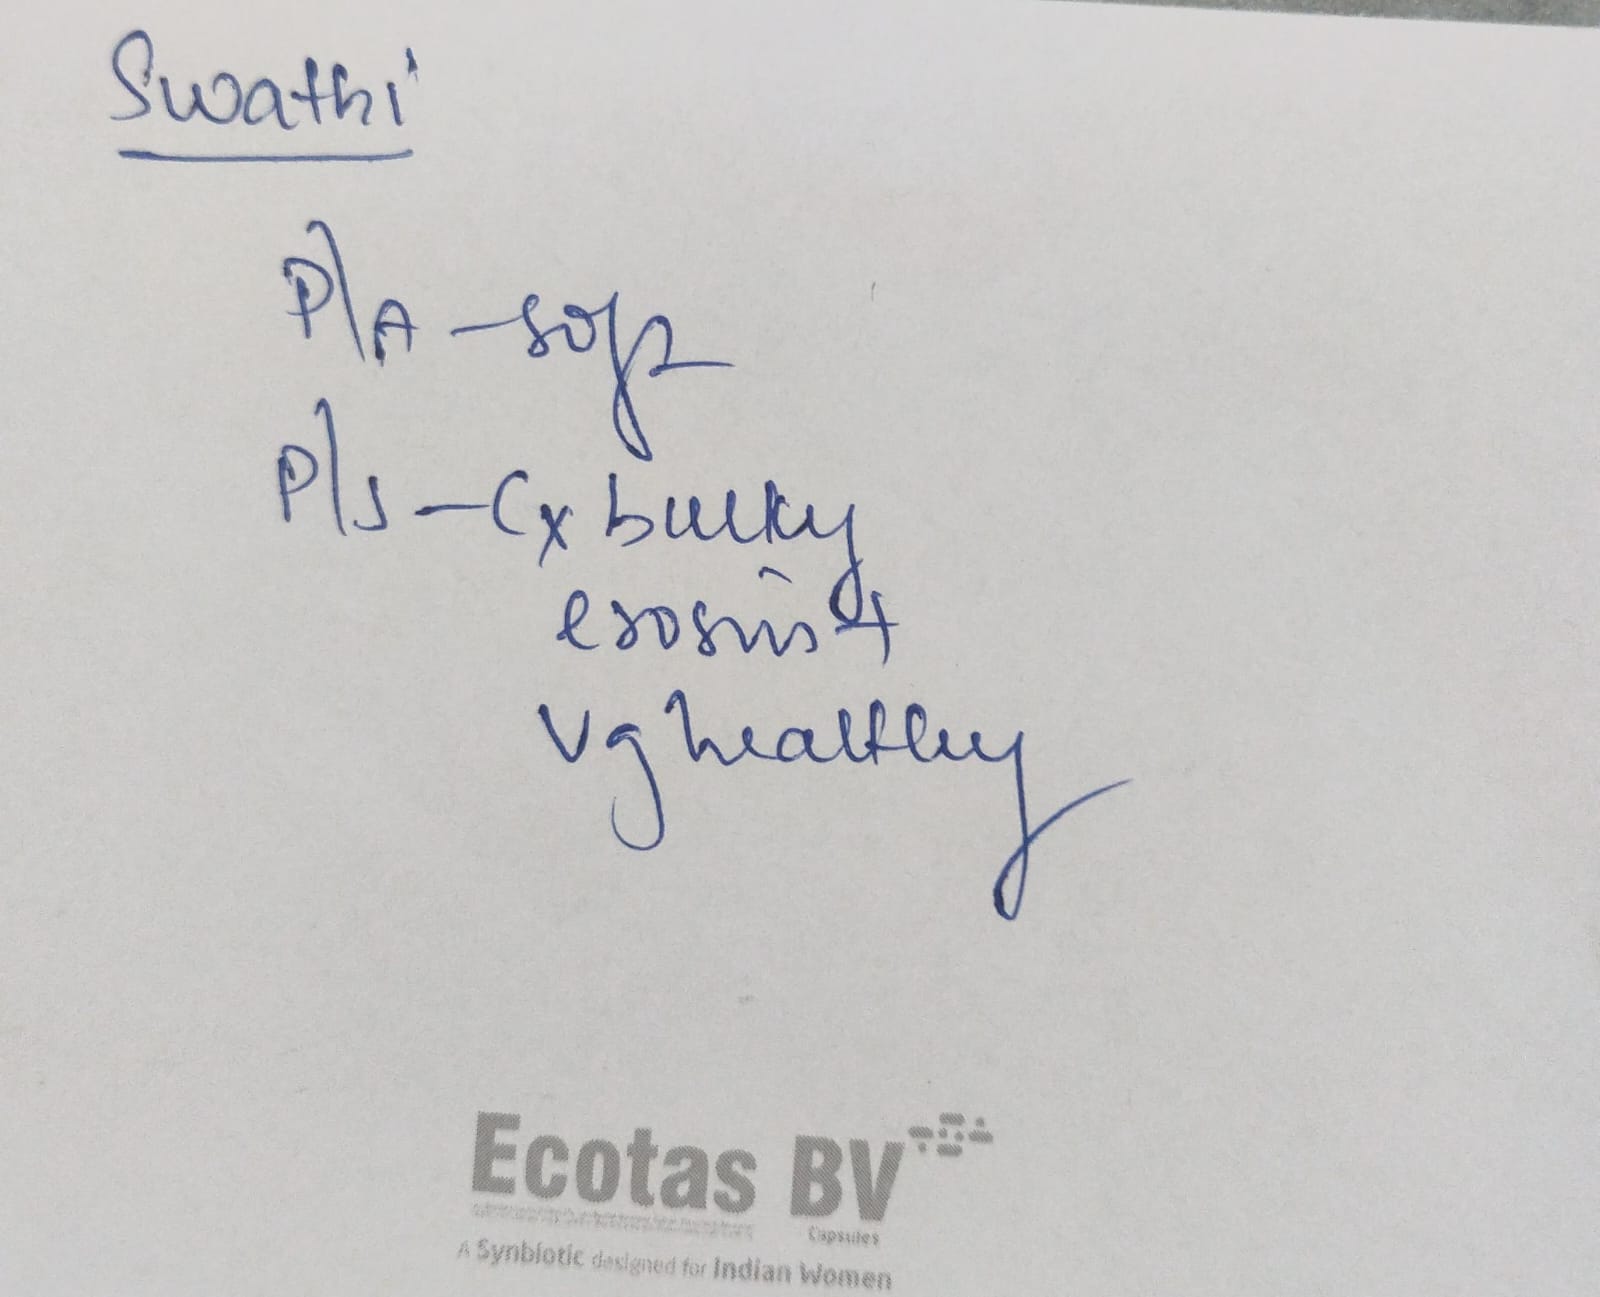 Swathi
P/A - soft
P/s - Cx bulky
erosion +
Vg healthy
Ecotas BV
Capsules
A Synbiotic designed for Indian Women